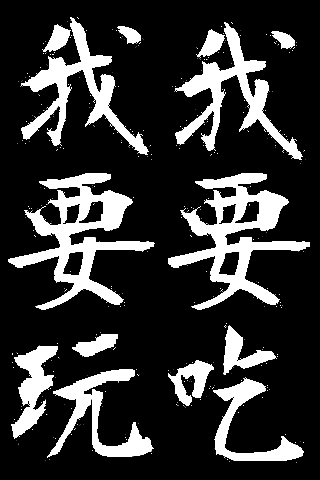 我要吃
我要玩